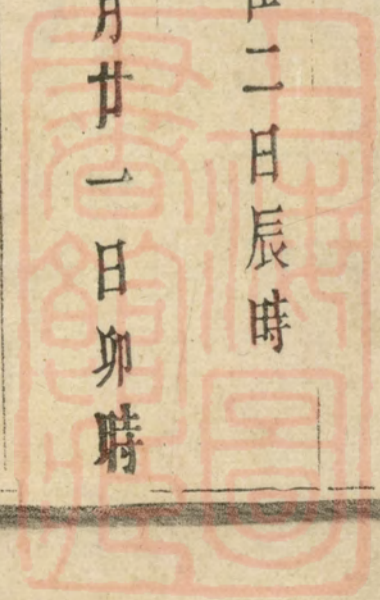 二日辰時
月廿一日卯時